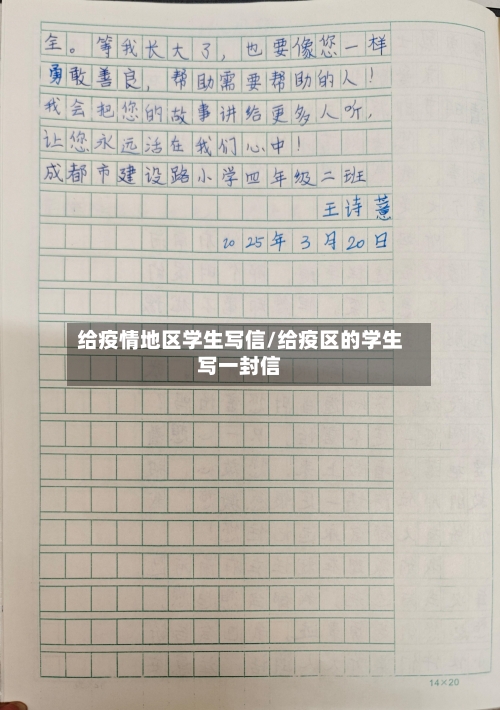 全。等我长大了，也要像您一样
勇敢善良，帮助需要帮助的人！
我会把您的故事讲给更多人听，
让您永远活在我们心中！
成都市建设路小学四年级二班
王诗薏
2025年3月20日
给疫情地区学生写信/给疫区的学生
写一封信
14×20